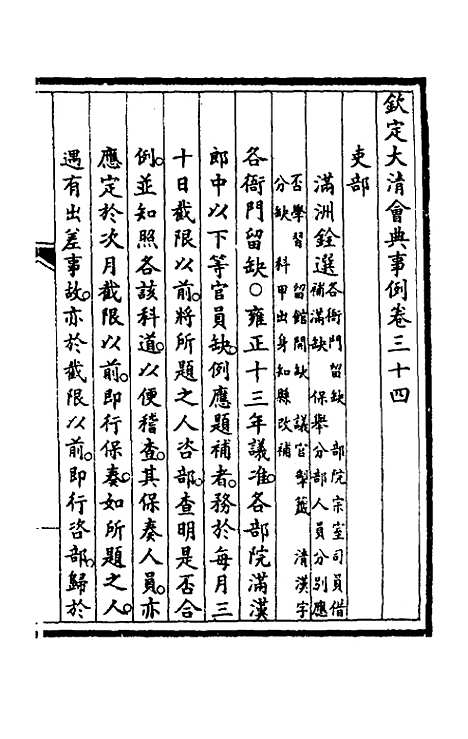 欽定大清會典事例卷三十四
吏部
滿洲銓選各衙門留缺 部院宗室司員借補滿缺 保舉分部人員分別應
否學習 留館開缺 議官掣籤 清漢字分缺 科甲出身知縣改補
各衙門留缺○雍正十三年議准。各部院滿漢
郎中以下等官員缺。例應題補者。務於每月三
十日截限以前。將所題之人咨部。查明是否合
例。並知照各該科道。以便稽查。其保奏人員。亦
應定於次月截限以前。即行保奏。如所題之人。
遇有出差事故。亦於截限以前。即行咨部。歸於